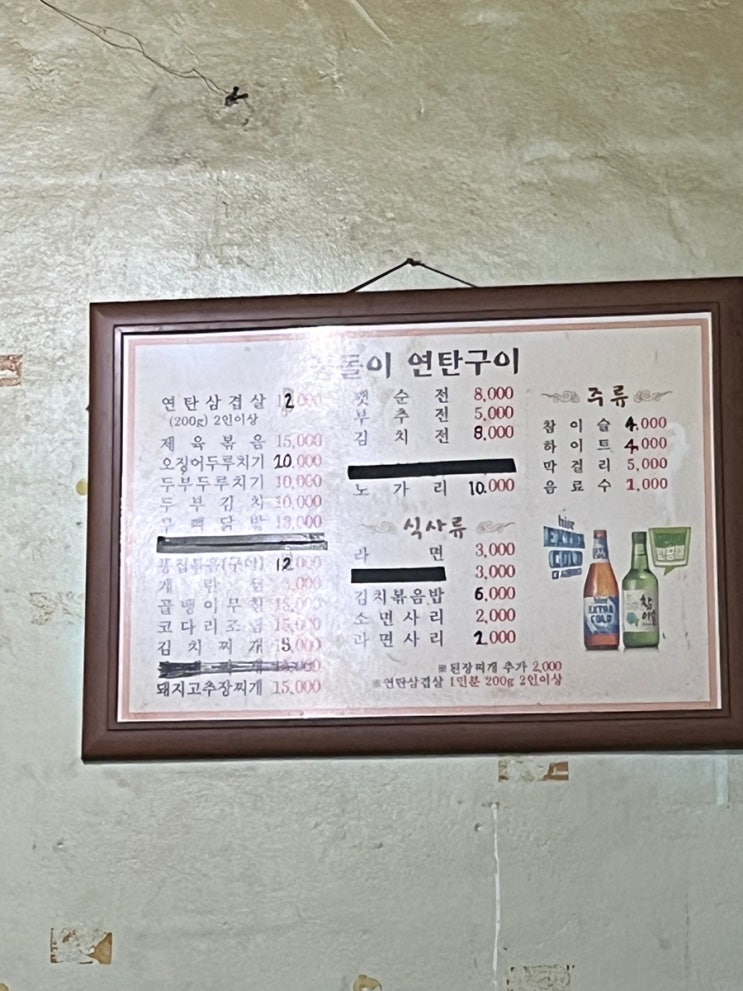 돌이 연탄구이
연탄삼겹살 12,000
(200g) 2인이상
제육볶음 15,000
오징어두루치기 10,000
두부두루치기 10,000
두부김치 10,000
12,000
계란
골뱅이무침 15,000
코다리조림 15,000
김치찌개
돼지고추장찌개 15,000
깻순전 8,000
부추전 5,000
김치전 8,000
노가리 10,000
식사류
라면 3,000
3,000
김치볶음밥 6,000
소면사리 2,000
라면사리 2,000
주류
참이슬 4,000
하이트 4,000
막걸리 5,000
음료수 1,000
EXTRA COLD
EXTRA
COLD
참이슬
※된장찌개 추가 2,000
※연탄삼겹살 1인분 200g 2인이상